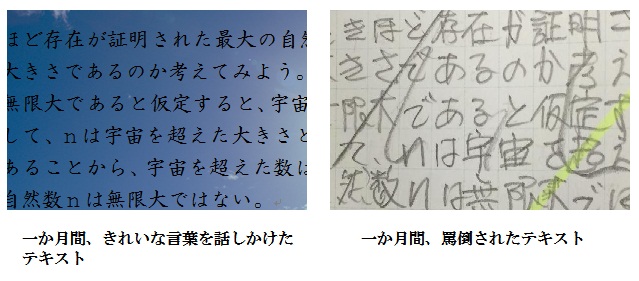 ほど存在が証明された最大の自然
大きさであるのか考えてみよう。
無限大であると仮定すると、宇宙
して、ｎは宇宙を超えた大きさと
あることから、宇宙を超えた数は
自然数ｎは無限大ではない。
きほど存在が証明さ
きさであるのか考え
限大であると仮定す
て、nは宇宙を超え
然数nは無限大では
一か月間、きれいな言葉を話しかけた
テキスト
一か月間、罵倒されたテキスト